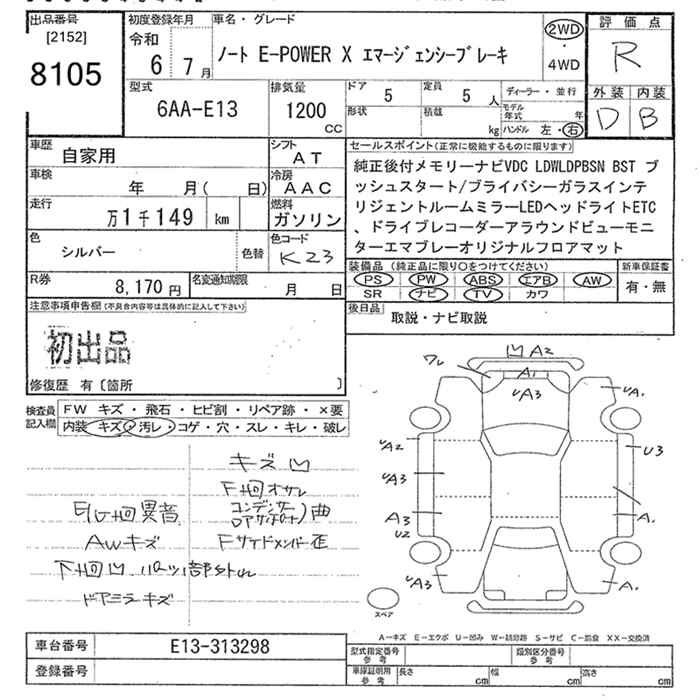 出品番号
[2152]
8105
初度登録年月
令和
6年 7月
車名・グレード
ノート E-POWER X エマージェンシーブレーキ
2WD
・
4WD
評価点
R
外装 内装
D B
型式
6AA-E13
排気量
1200
CC
ドア 5
定員 5 人
形状
積載 kg
ディーラー・並行
モデル年式 年
ハンドル 左・右
車歴
自家用
シフト
AT
車検
年 月( 日)
冷房
AAC
走行
万1千149 km
燃料
ガソリン
色
シルバー
色替
色コード
K23
R券
8,170円
名変通知期限
月 日
セールスポイント(正常に機能するものに限る)
純正後付メモリーナビVDC LDWLDPBSN BST プ
ッシュスタート/プライバシーガラスインテ
リジェントルームミラーLEDヘッドライトETC
、ドライブレコーダーアラウンドビューモニ
ターエマブレーオリジナルフロアマット
装備品(純正品に限り○をつけてください)
PS PW ABS エアB AW
SR ナビ TV カワ
新車保証書
有・無
後日品
取説・ナビ取説
注意事項申告欄(不具合内容等は具体的に記入して下さい)
初出品
修復歴 有〔箇所 〕
検査員
記入欄
FW キズ・飛石・ヒビ割・リペア跡・×要
内装 キズ・汚レ・コゲ・穴・スレ・キレ・破レ
キズ凹
F廻オサレ
コンデンサー
曲
E/G廻異音
AWキズ
Fサイドメンバー歪
下廻凹
ドアミラーキズ
ワレ
凹A2
A1
UA3
UA1
UA2
U3
UA3
A3
U2
A1
UA3
A1
スペア
A-キズ E-エクボ U-凹み W-補修跡 S-サビ C-腐食 XX-交換済
車台番号
E13-313298
登録番号
型式指定番号
参考
類別区分番号
参考
車庫証明用
参考
長さ cm
幅 cm
高さ cm